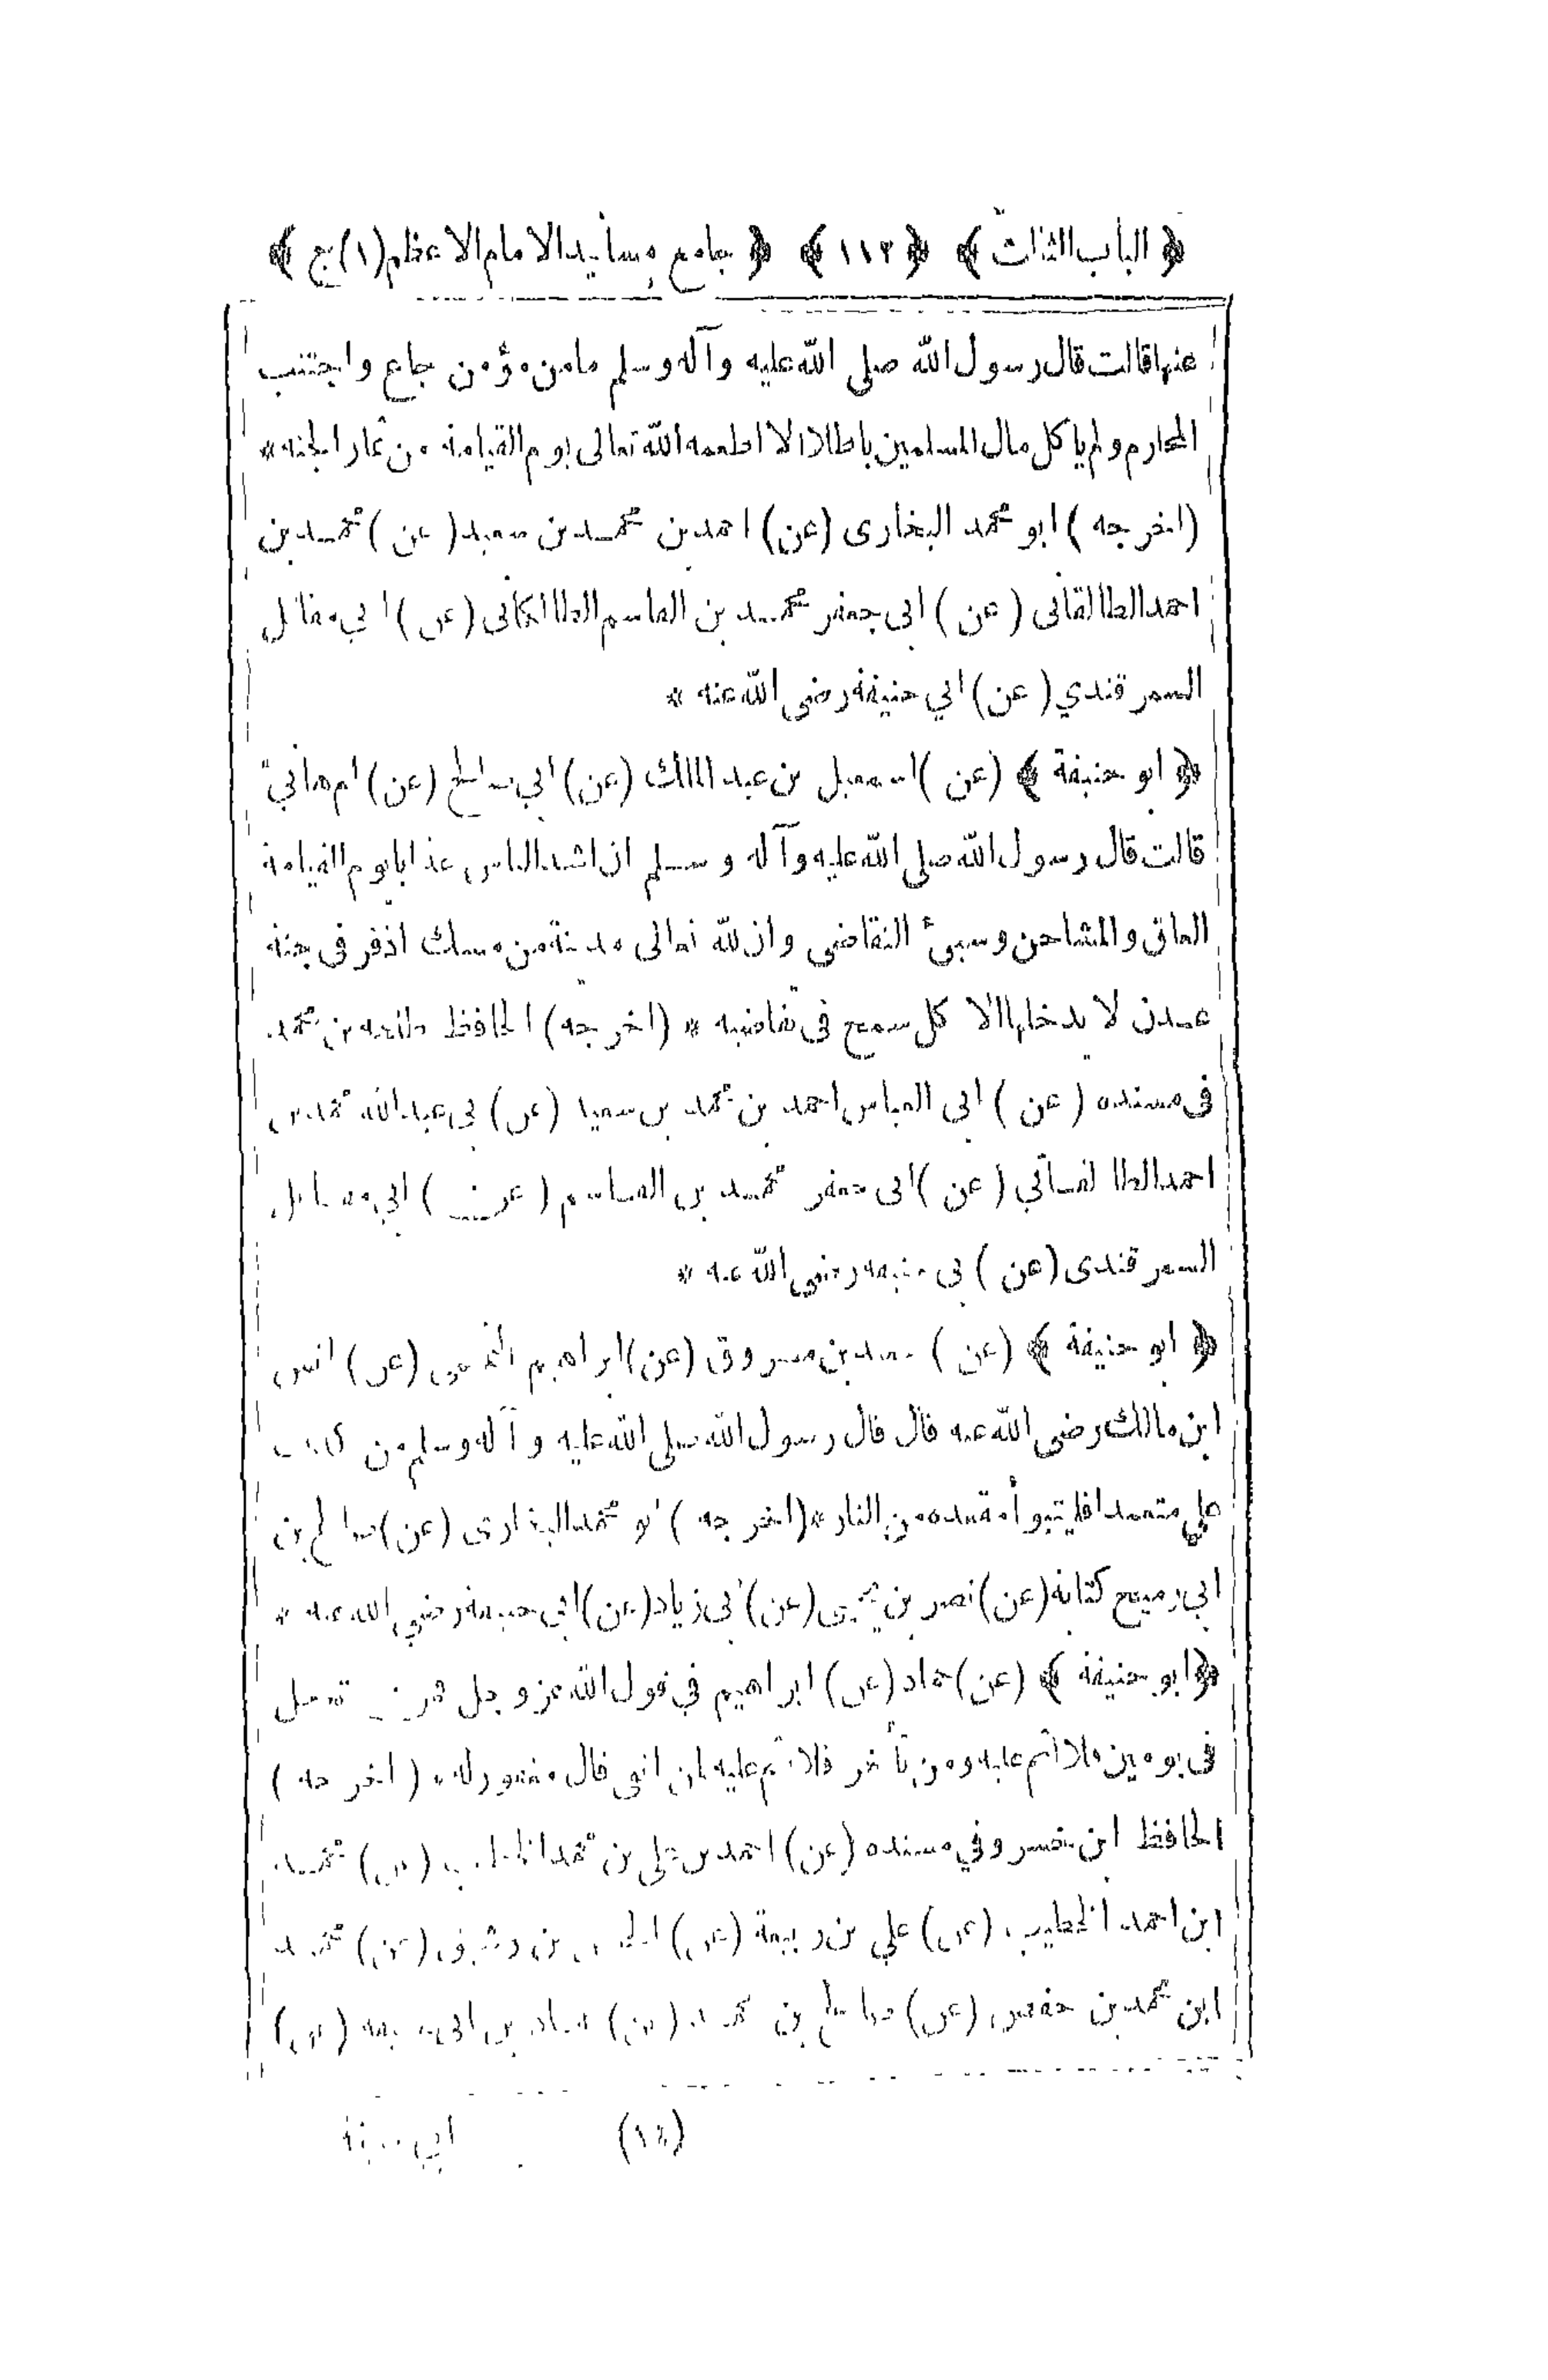 ﴿ الباب الثالث ﴾ ﴿ ١١٣ ﴾ ﴿ جامع مسانيد الامام الاعظم (١) ج ﴾
عنها قالت قال رسول الله صلى الله عليه وآله وسلم مامن مؤمن جاع واجتنب
المحارم ولم ياكل مال المسلمين باطلا الا اطعمه الله تعالى يوم القيامة من ثمار الجنة *
(اخرجه) ابو محمد البخارى (عن) احمد بن محمد بن سعيد (عن) محمد بن
احمد الطالقانى (عن) ابى جعفر محمد بن القاسم الطالكانى (عن) ابي مقاتل
السمرقندي (عن) ابي حنيفة رضى الله عنه *
﴿ ابو حنيفة ﴾ (عن) اسمعيل بن عبد الملك (عن) ابي صالح (عن) ام هانئ
قالت قال رسول الله صلى الله عليه وآله وسلم ان اشد الناس عذابا يوم القيامة
العاق والمشاحن وسيئ التقاضى وان لله تعالى مدينة من مسك اذفر فى جنة
عدن لا يدخلها الا كل سمح فى تقاضيه * (اخرجه) الحافظ طلحة بن محمد
فى مسنده (عن) ابى العباس احمد بن محمد بن سعيد (عن) ابى عبد الله محمد بن
احمد الطالقانى (عن) ابى جعفر محمد بن القاسم (عن) ابي مقاتل
السمرقندى (عن) ابى حنيفة رضى الله عنه *
﴿ ابو حنيفة ﴾ (عن) سعيد بن مسروق (عن) ابراهيم التيمى (عن) انس
ابن مالك رضى الله عنه قال قال رسول الله صلى الله عليه وآله وسلم من كذب
على متعمدا فليتبوأ مقعده من النار * (اخرجه) ابو محمد البخارى (عن) صالح بن
ابي رميح كتابة (عن) نصر بن يحيى (عن) ابى زياد (عن) ابى حنيفة رضي الله عنه *
﴿ ابو حنيفة ﴾ (عن) حماد (عن) ابراهيم في قول الله عز وجل فمن تعجل
فى يومين فلا اثم عليه ومن تأخر فلا اثم عليه لمن اتقى قال مغفور له * (اخرجه)
الحافظ ابن خسرو في مسنده (عن) احمد بن على بن محمد الخطيب (عن) محمد
ابن احمد الخطيب (عن) علي بن ربيعة (عن) الحسن بن رشيق (عن) محمد
ابن محمد بن حفص (عن) صالح بن محمد (عن) حماد بن ابى حنيفة (عن)
(١٤) ابي حنيفة